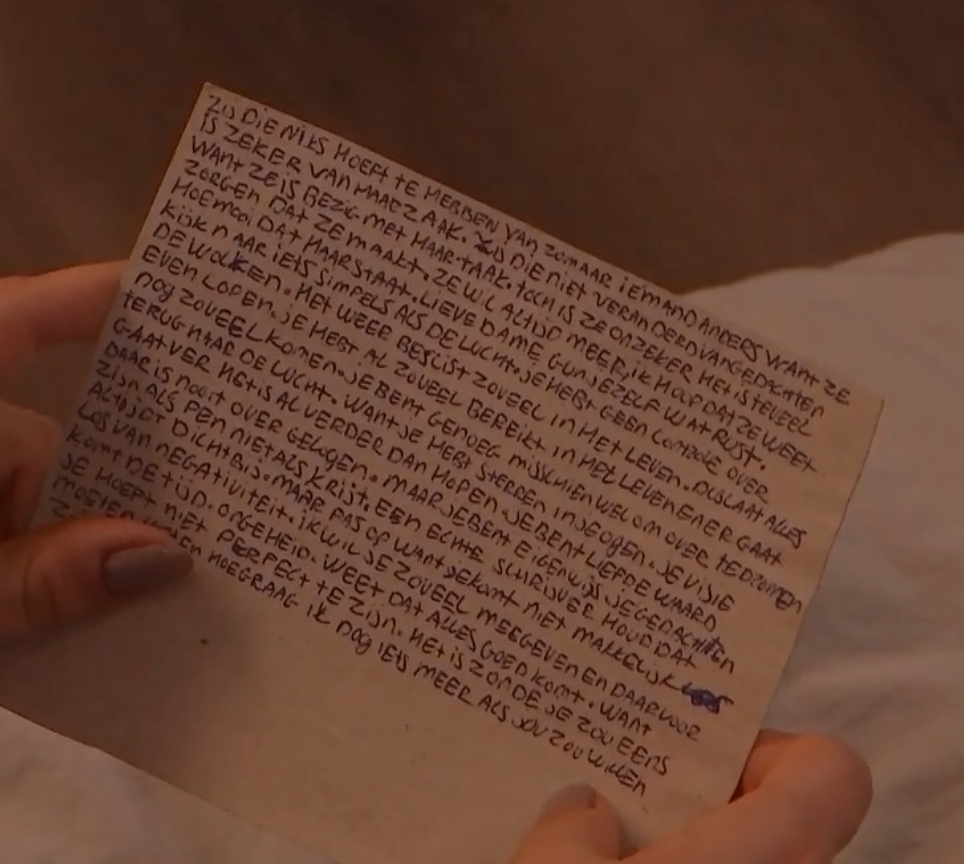 ZIJ DIE NIKS HOEFT TE HEBBEN VAN ZOMAAR IEMAND ANDERS WANT ZE
IS ZEKER VAN HAAR ZAAK. ZIJ DIE NIET VERANDERD VAN GEDACHTEN
WANT ZE IS BEZIG MET HAAR TAAK. TOCH IS ZE ONZEKER HET IS TEVEEL
ZORGEN DAT ZE MAAKT. ZE WIL ALTIJD MEER, IK HOOP DAT ZE WEET
HOE MOOI DAT HAAR STAAT. LIEVE DAME GUN JEZELF WAT RUST.
KIJK NAAR IETS SIMPELS ALS DE LUCHT. JE HEBT GEEN CONTROLE OVER
DE WOLKEN. HET WEER BESLIST ZOVEEL IN HET LEVEN. DUS LAAT ALLES
EVEN LOPEN. JE HEBT AL ZOVEEL BEREIKT IN HET LEVEN EN ER GAAT
NOG ZOVEEL KOMEN. JE BENT GENOEG MISSCHIEN WEL OM OVER TE DROMEN
TERUG NAAR DE LUCHT. WANT JE HEBT STERREN IN JE OGEN. JE VISIE
GAAT VER HET IS AL VERDER DAN HOPEN. JE BENT LIEFDE WAARD
DAAR IS NOOIT OVER GELOGEN. MAAR JE BENT EIGENWIJS JE GEDACHTEN
ZIJN ALS PEN NIET ALS KRIJT. EEN ECHTE SCHRIJVER HOUD DAT
ALTIJD DICHTBIJ. MAAR PAS OP WANT JE KOMT NIET MAKKELIJK
LOS VAN NEGATIVITEIT. IK WIL JE ZOVEEL MEEGEVEN EN DAARVOOR
KOMT DE TIJD. ONGEHEID. WEET DAT ALLES GOED KOMT. WANT
JE HOEFT NIET PERFECT TE ZIJN. HET IS ZONDE JE ZOU EENS
MOETEN HOE GRAAG IK NOG IETS MEER ALS JOU ZOU WILLEN